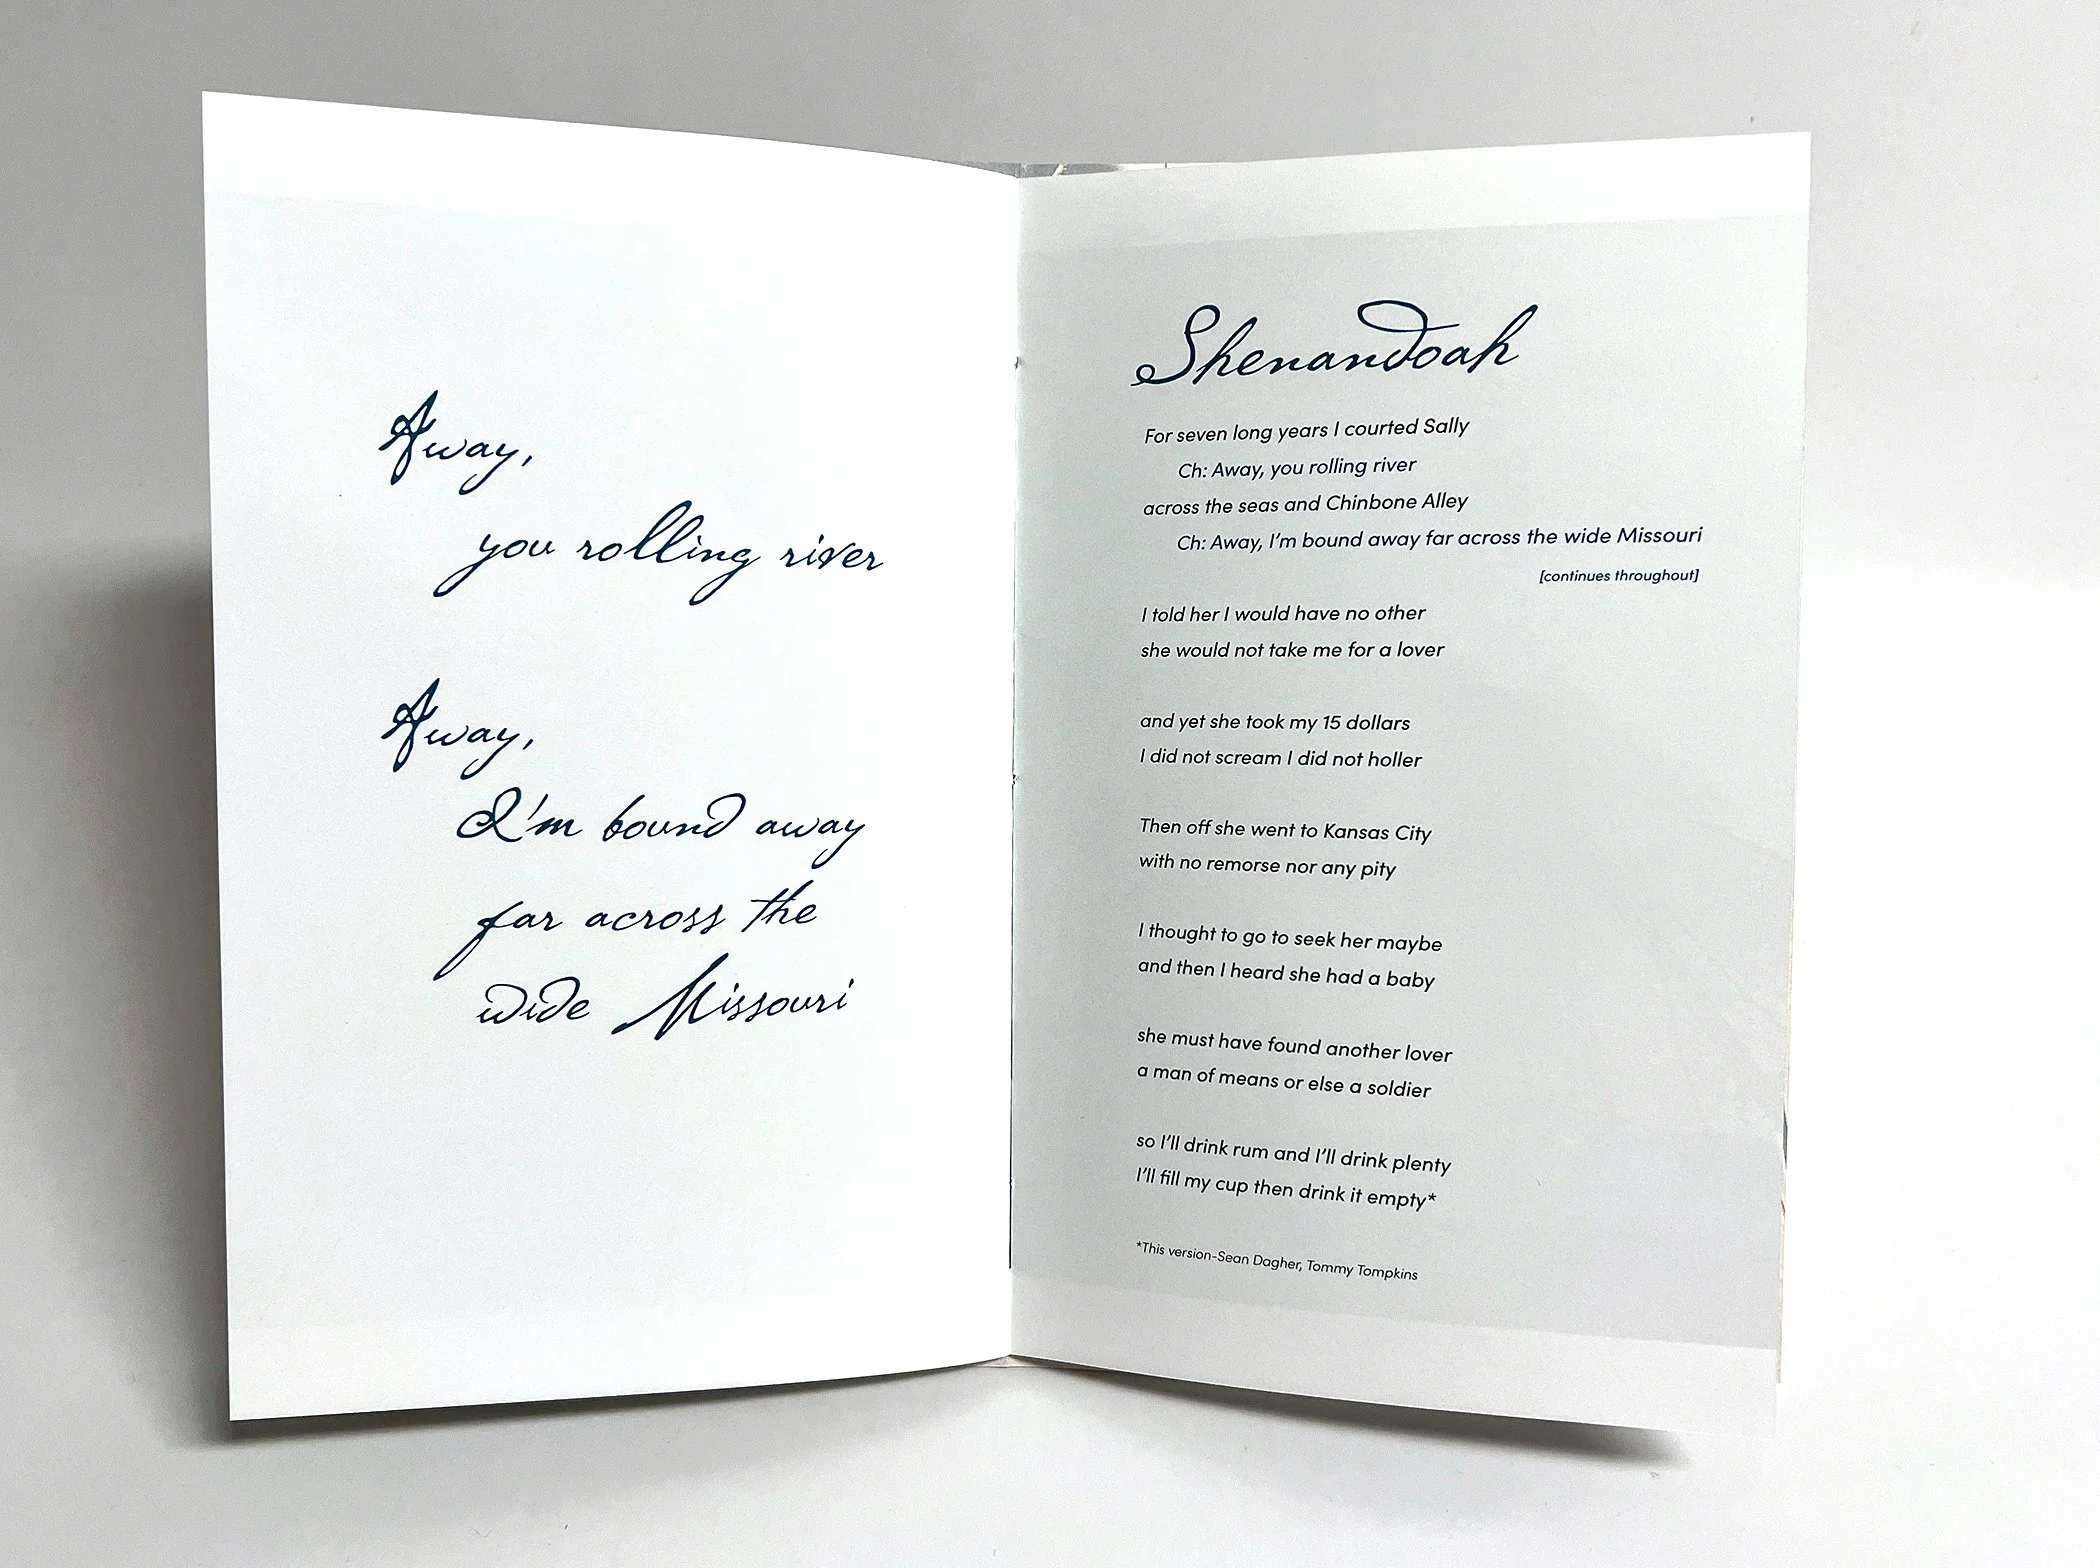 Away,
you rolling river
Away,
I'm bound away
far across the
wide Missouri
Shenandoah
For seven long years I courted Sally
Ch: Away, you rolling river
across the seas and Chinbone Alley
Ch: Away, I'm bound away far across the wide Missouri
[continues throughout]
I told her I would have no other
she would not take me for a lover
and yet she took my 15 dollars
I did not scream I did not holler
Then off she went to Kansas City
with no remorse nor any pity
I thought to go to seek her maybe
and then I heard she had a baby
she must have found another lover
a man of means or else a soldier
so I'll drink rum and I'll drink plenty
I'll fill my cup then drink it empty*
*This version-Sean Dagher, Tommy Tompkins